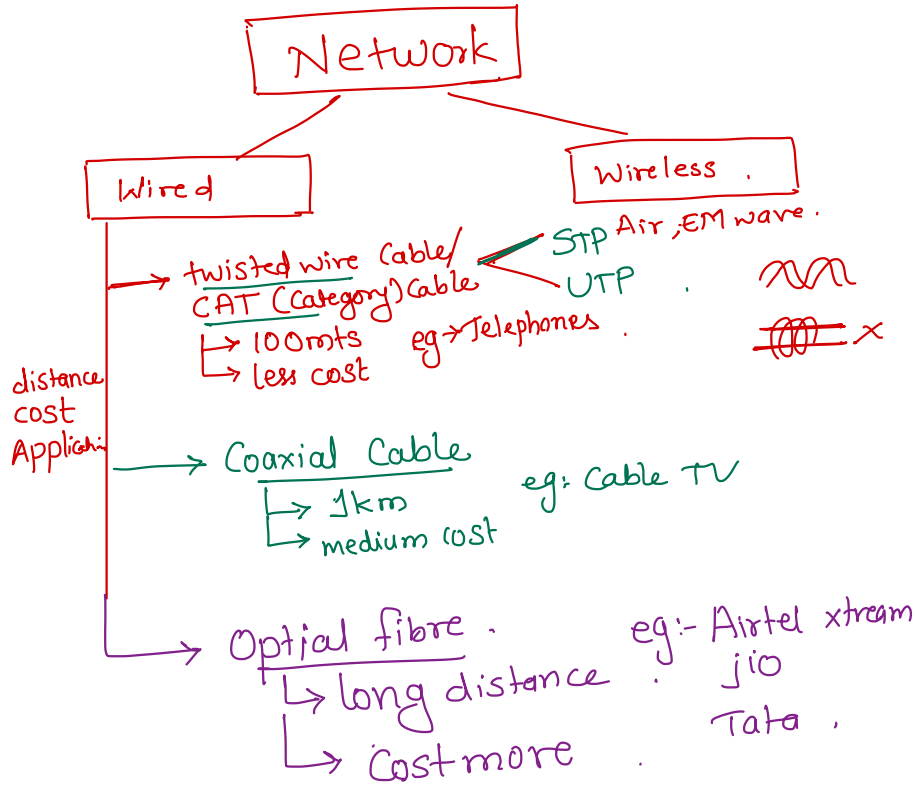 Network
Wired
Wireless .
Air, EM wave.
twisted wire Cable/
CAT (Category) Cable
STP
UTP
100mts
less cost
eg → Telephones
x
distance
cost
Coaxial Cable
1km
medium cost
eg: Cable TV
Optial fibre .
long distance
Cost more
eg:- Airtel xtream
jio
Tata .